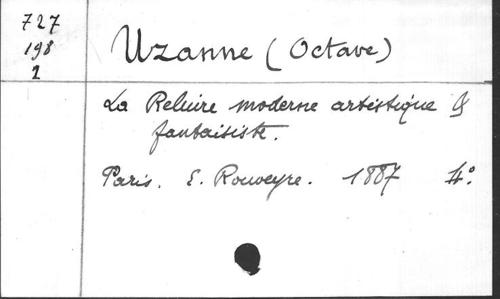 727
198
1
Uzanne (Octave)
La Reliure moderne artistique &
fantaisiste.
Paris. E. Rouveyre. 1887 4°